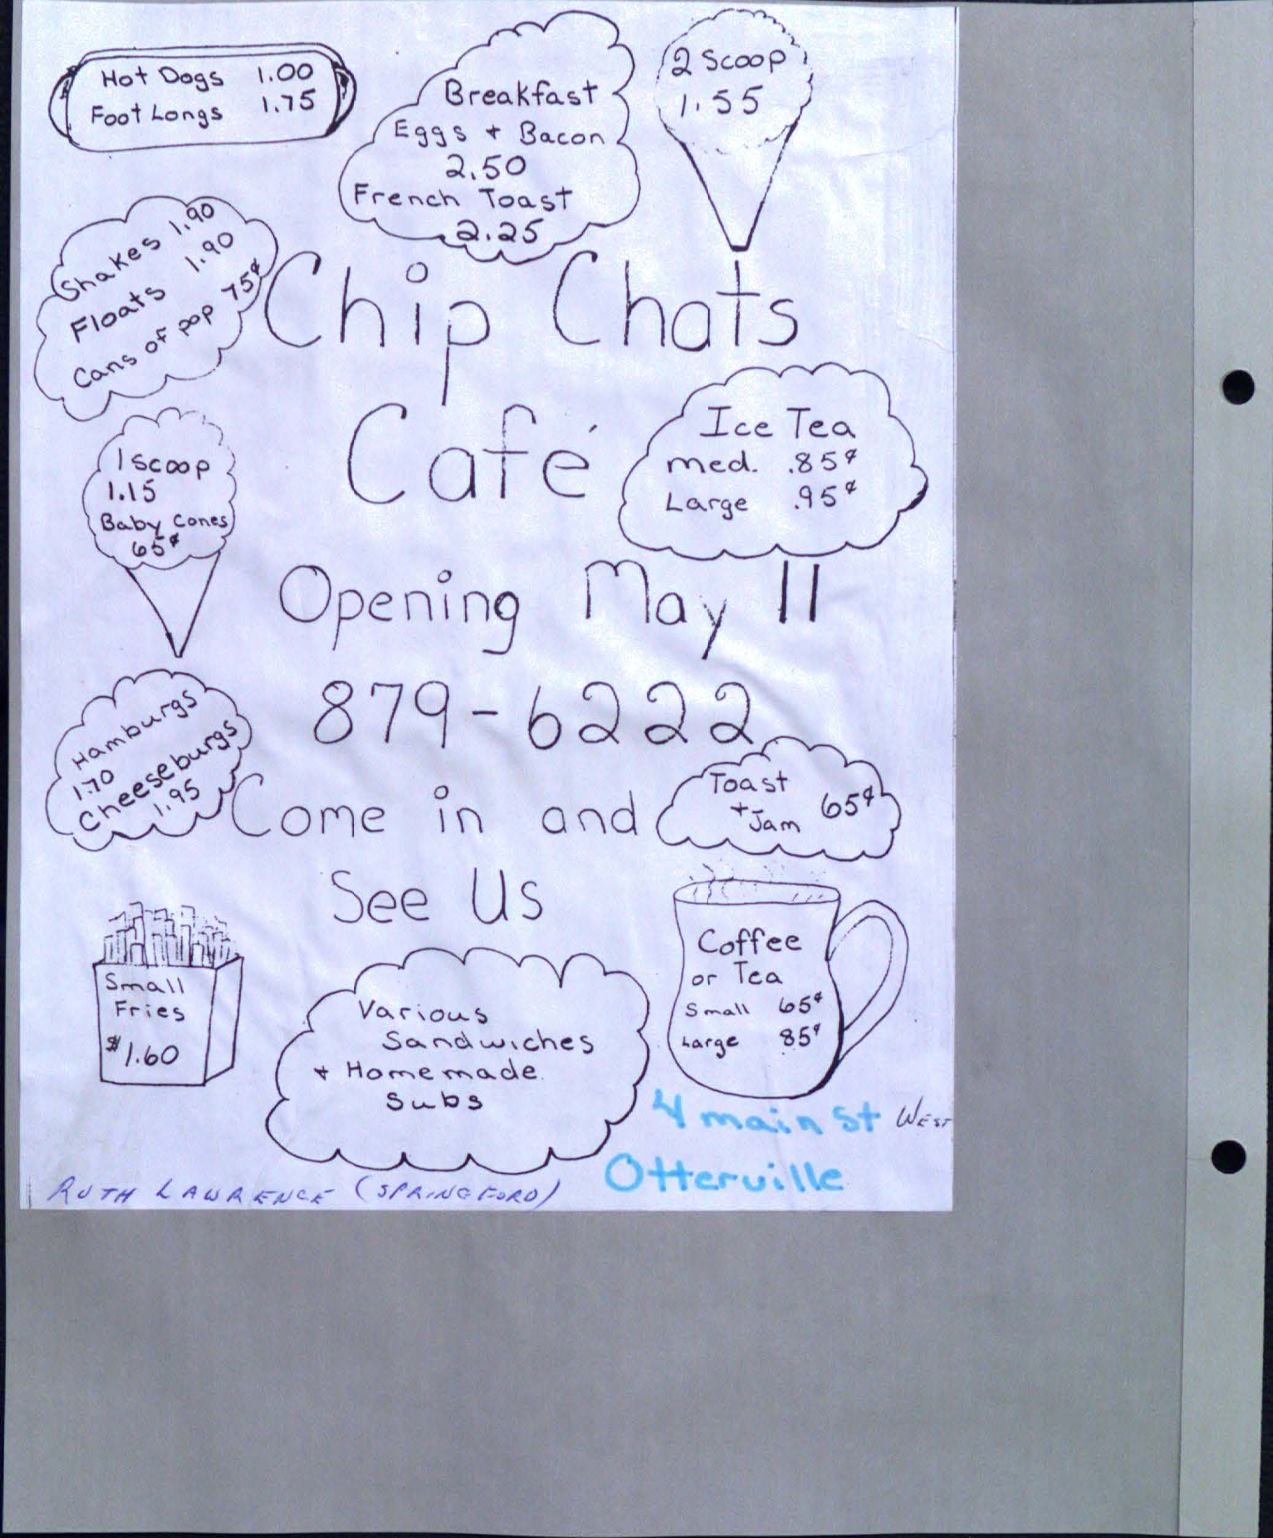 Hot Dogs 1.00
Foot Longs 1.75
Breakfast
Eggs + Bacon
2.50
French Toast
2.25
2 Scoop
1.55
Shakes 1.90
Floats 1.90
Cans of pop 75¢
Chip Chats
Café
Ice Tea
med. .85¢
Large .95¢
1 scoop
1.15
Baby Cones
65¢
Opening May 11
879-6222
Hamburgs
1.70
Cheeseburgs
1.95
Come in and
See Us
Toast
+ Jam 65¢
Small
Fries
$1.60
Various
Sandwiches
+ Homemade
Subs
Coffee
or Tea
Small 65¢
Large 85¢
4 main St West
Otterville
RUTH LAWRENCE (SPRINGFORD)